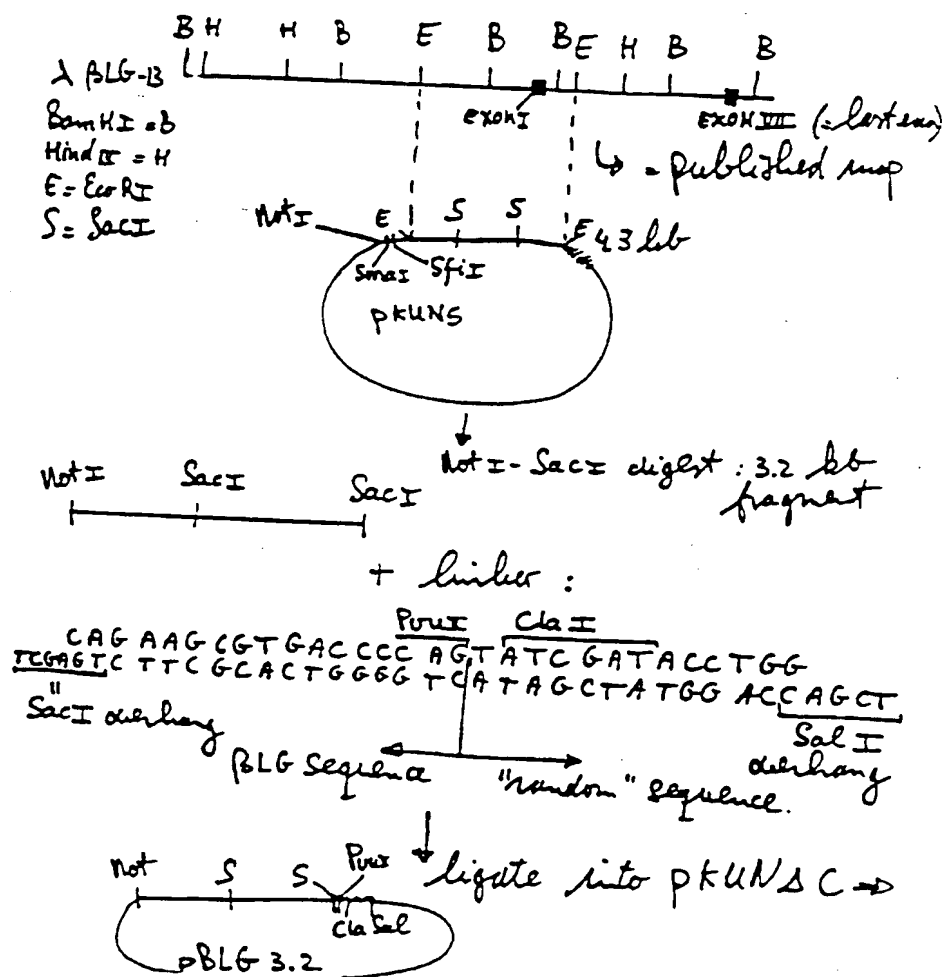 B H H B E B B E H B B
λ βLG-13
BamHI = B
Hind III = H
E = EcoRI
S = SacI
exon I
exon VII (= last exon)
↳ = published map
Not I E S S E 4.3 kb
SmaI SfiI
pKUNS
↓
Not I - Sac I digest : 3.2 kb
fragment
Not I Sac I Sac I
+ linker :
PvuI Cla I
CAG AAG CGT GACCCC AGT ATC GAT ACC TGG
TCGAGTC TTC GCACTGGGG TCA TAGCTA TGG ACC AGCT
SacI overhang
Sal I
overhang
βLG sequence
"random" sequence.
↓
Not S S PvuI
Cla Sal
ligate into pKUNΔC ⇒
pBLG 3.2